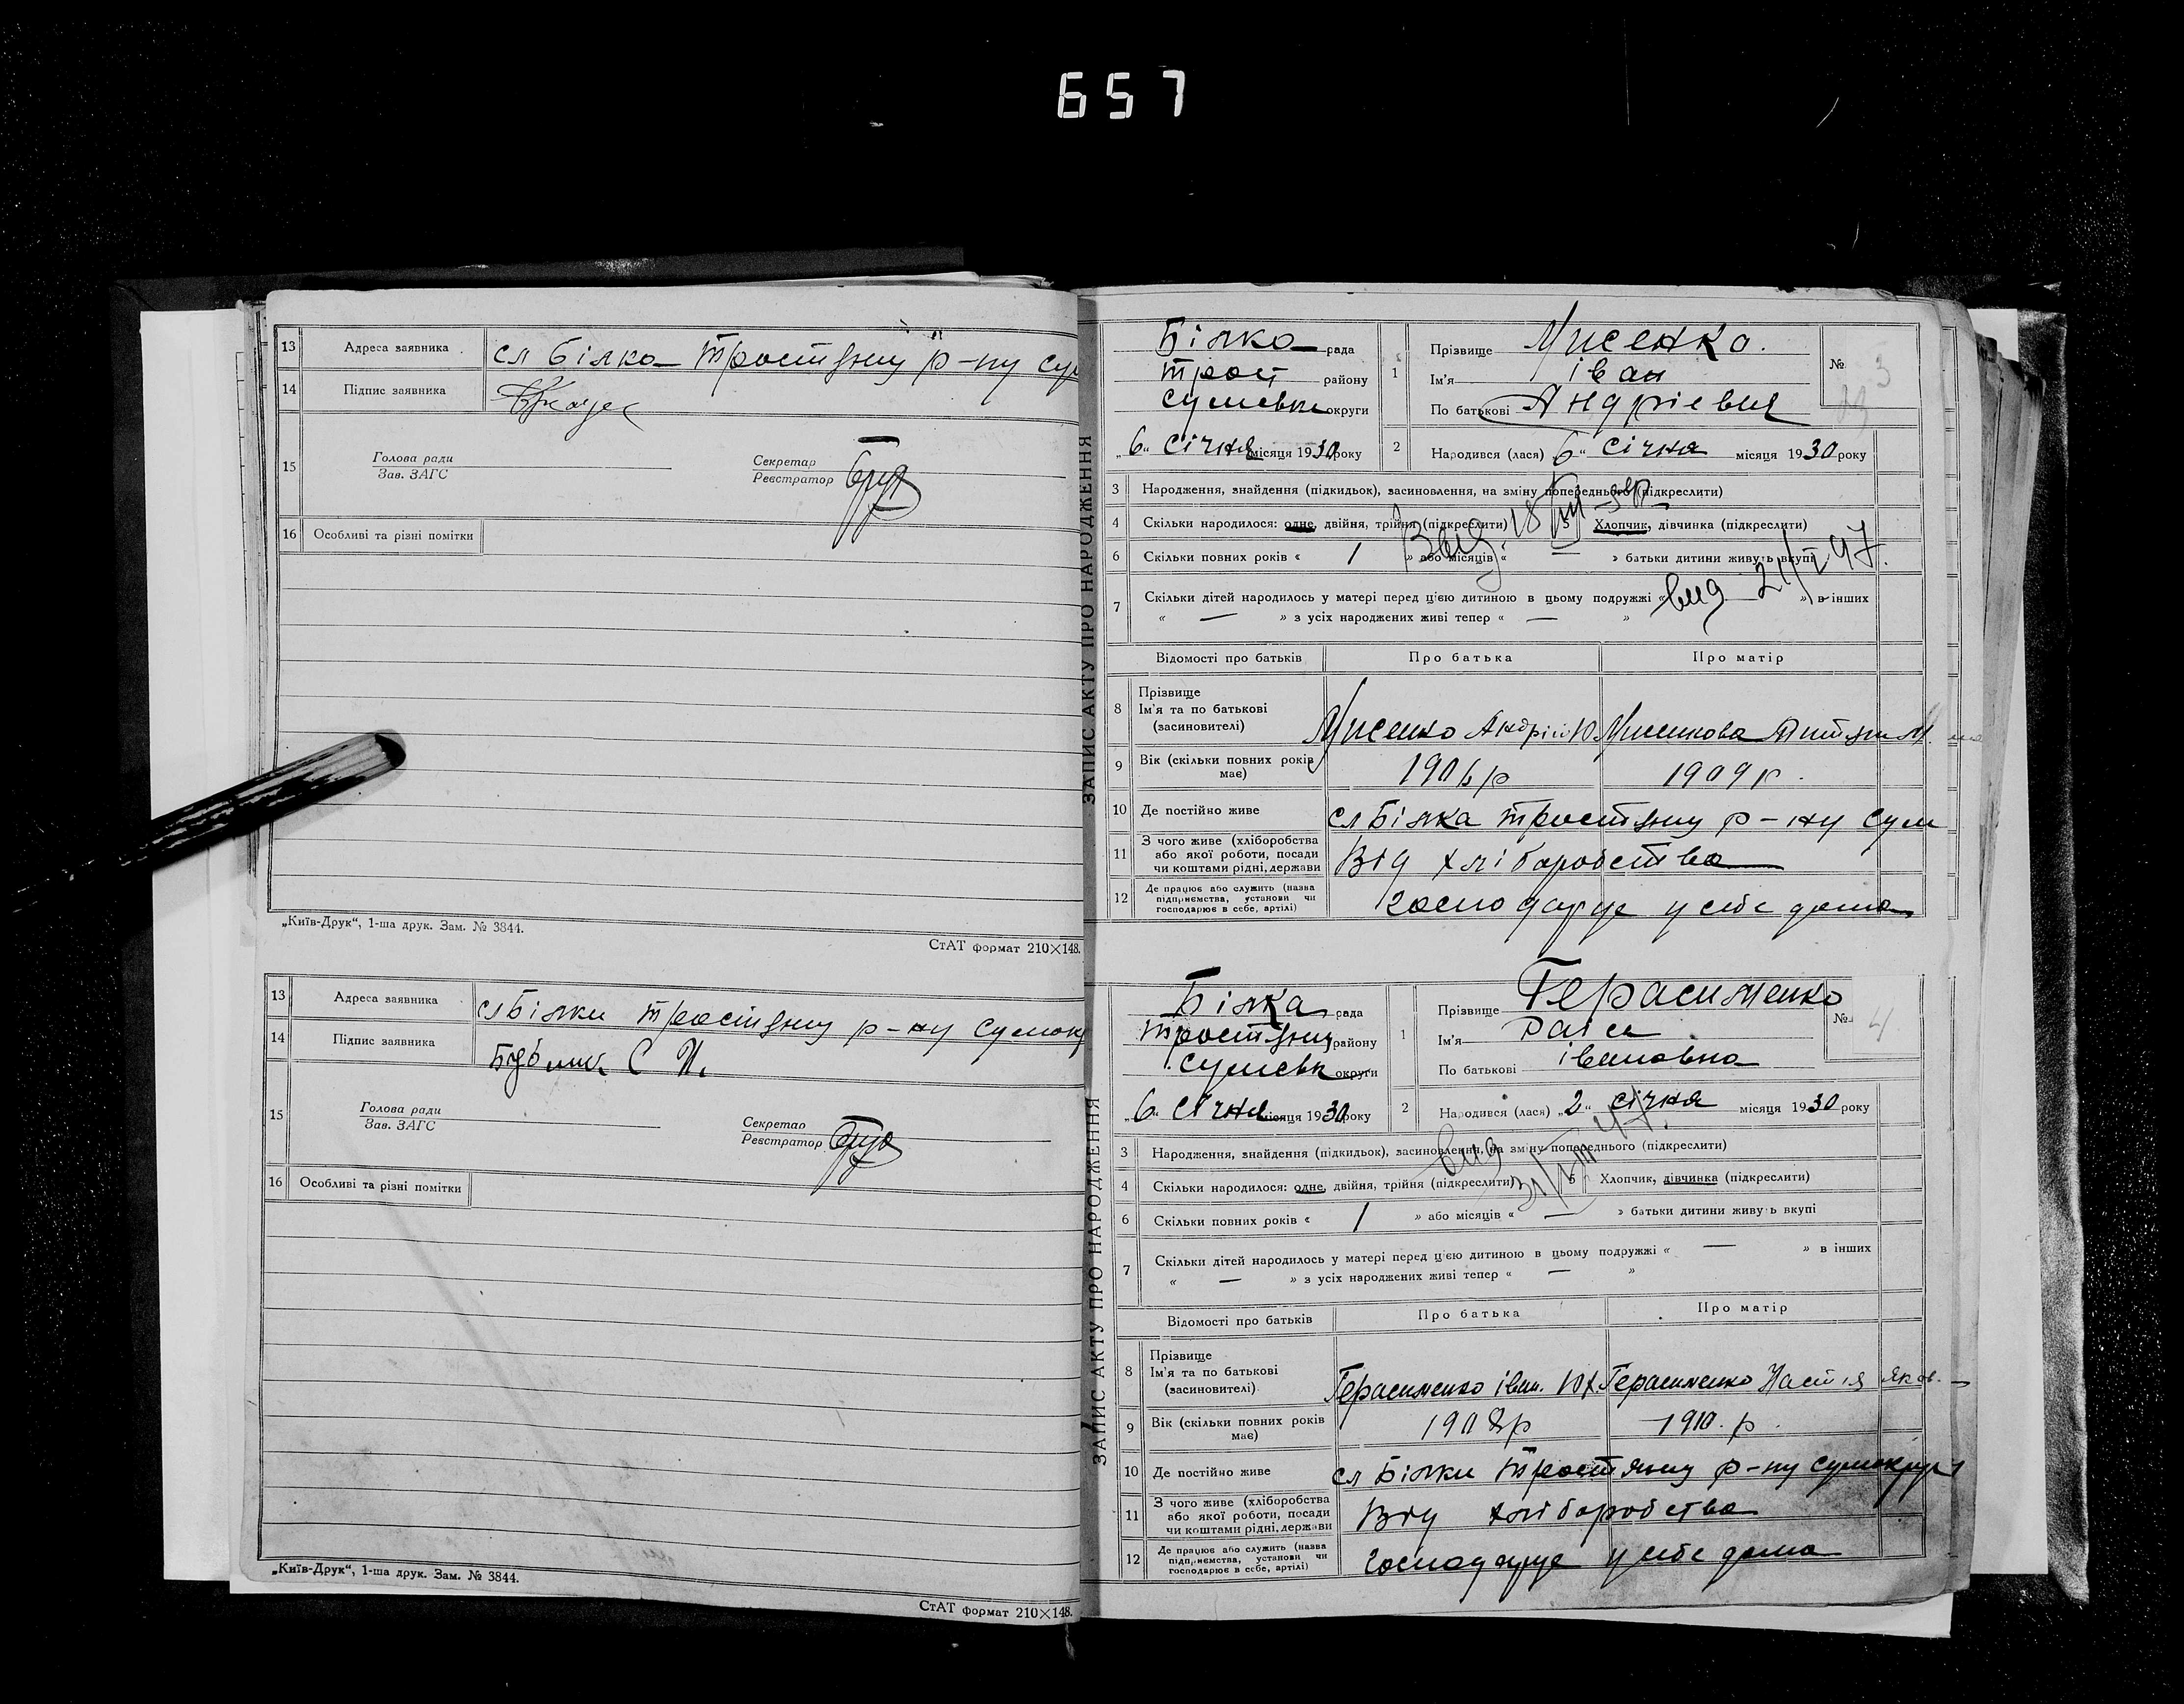 657
13 Адреса заявника сл Білка Тростяну р-ну Сум
14 Підпис заявника
15 Голова ради Зав. ЗАГС Секретар Реєстратор
16 Особливі та різні помітки
„Київ-Друк“, 1-ша друк. Зам. № 3844.
СтАТ формат 210×148.
13 Адреса заявника сл Білки Тростяну р-ну Сумок
14 Підпис заявника
15 Голова ради Зав. ЗАГС Секретар Реєстратор
16 Особливі та різні помітки
„Київ-Друк“, 1-ша друк. Зам. № 3844.
СтАТ формат 210×148.
ЗАПИС АКТУ ПРО НАРОДЖЕННЯ
Білка рада
Трост району
Сумськ округи
„6“ Січня місяця 1930 року
1 Прізвище Мисенко.
Ім'я Іван
По батькові Андрієвич
№ 3
2 Народився (лася) „6“ Січня місяця 1930 року
3 Народження, знайдення (підкидьок), засиновлення, на зміну попереднього (підкреслити)
4 Скільки народилося: одне, двійня, трійня (підкреслити) 5 Хлопчик, дівчинка (підкреслити)
6 Скільки повних років « 1 » або місяців « — » батьки дитини живуть вкупі
7 Скільки дітей народилось у матері перед цією дитиною в цьому подружжі « » в інших
« — » з усіх народжених живі тепер « — »
Вид. 18
вид 21/I 97.
Відомості про батьків Про батька Про матір
8 Прізвище Ім'я та по батькові (засиновителі) Мисенко Андрій Ю Мисенкова М.
9 Вік (скільки повних років має) 1906 р 1909 р.
10 Де постійно живе сл Білка Тростяну р-ну Сум
11 З чого живе (хліборобства або якої роботи, посади чи коштами рідні, держави Від хліборобства
12 Де працює або служить (назва підприємства, установи чи господарює в себе, артілі) господарує у себе дома
ЗАПИС АКТУ ПРО НАРОДЖЕННЯ
Білка рада
Тростяну району
Сумськ округи
„6“ Січня місяця 1930 року
1 Прізвище Герасименко
Ім'я Раіса
По батькові Івановна
№ 4
2 Народився (лася) „2“ січня місяця 1930 року
3 Народження, знайдення (підкидьок), засиновлення, на зміну попереднього (підкреслити)
4 Скільки народилося: одне, двійня, трійня (підкреслити) 5 Хлопчик, дівчинка (підкреслити)
6 Скільки повних років « 1 » або місяців « — » батьки дитини живуть вкупі
7 Скільки дітей народилось у матері перед цією дитиною в цьому подружжі « — » в інших
« — » з усіх народжених живі тепер « — »
вид
Відомості про батьків Про батька Про матір
8 Прізвище Ім'я та по батькові (засиновителі) Герасименко Іван. Юх Герасименко Настія Яков.
9 Вік (скільки повних років має) 1908 р 1910. р.
10 Де постійно живе сл Білки Тростяну р-ну Сумокруги
11 З чого живе (хліборобства або якої роботи, посади чи коштами рідні, держави Від хліборобства
12 Де працює або служить (назва підприємства, установи чи господарює в себе, артілі) господарує у себе дома